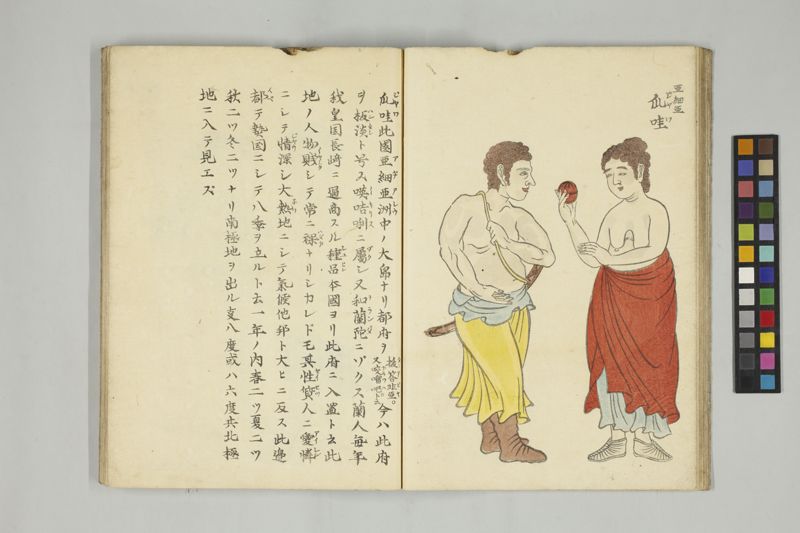 亜細亜
爪哇
爪哇此國亜細亜洲中ノ大島ナリ都府ヲ
ヲ板淡ト号ス咭唎ニ属シ又和蘭陀ニゾクス蘭人毎年
我皇国長崎ニ通商スル種品佗國ヨリ此府ニ入置ト云此
地ノ人物賎シテ常ニ裸ナリシカレドモ其性質人ニ愛憐
ニシテ情深シ大熱地ニシテ氣候他邦ト大ヒニ反ス此邉
都テ熱国ニシテ八季ヲ立ルト云一年ノ内春二ツ夏二ツ
秋二ツ冬二ツナリ南極地ヲ出ル支八度或ハ六度共北極
地ニ入テ見エズ